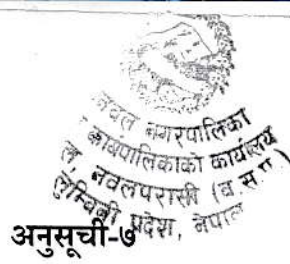 नगरपालिका
कार्यपालिकाको कार्यालय
नवलपरासी (ब.सु.प.)
लुम्बिनी प्रदेश, नेपाल
अनुसूची-७